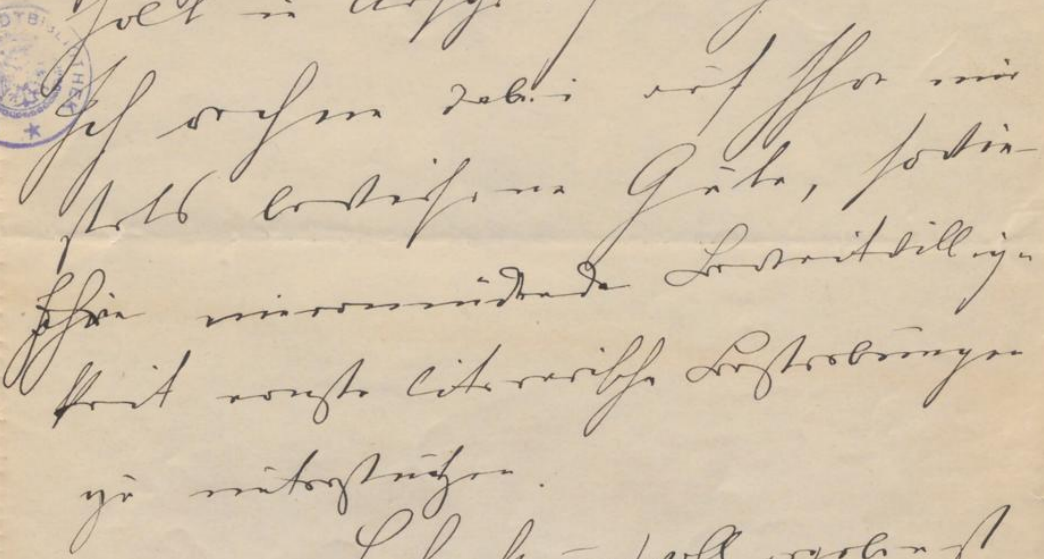 Ich rechne dabei auf Ihre mir
stets bewiesene Güte, sowie
Ihre nieermüdende Bereitwillig-
keit ernste literarische Bestrebungen
zu unterstützen.